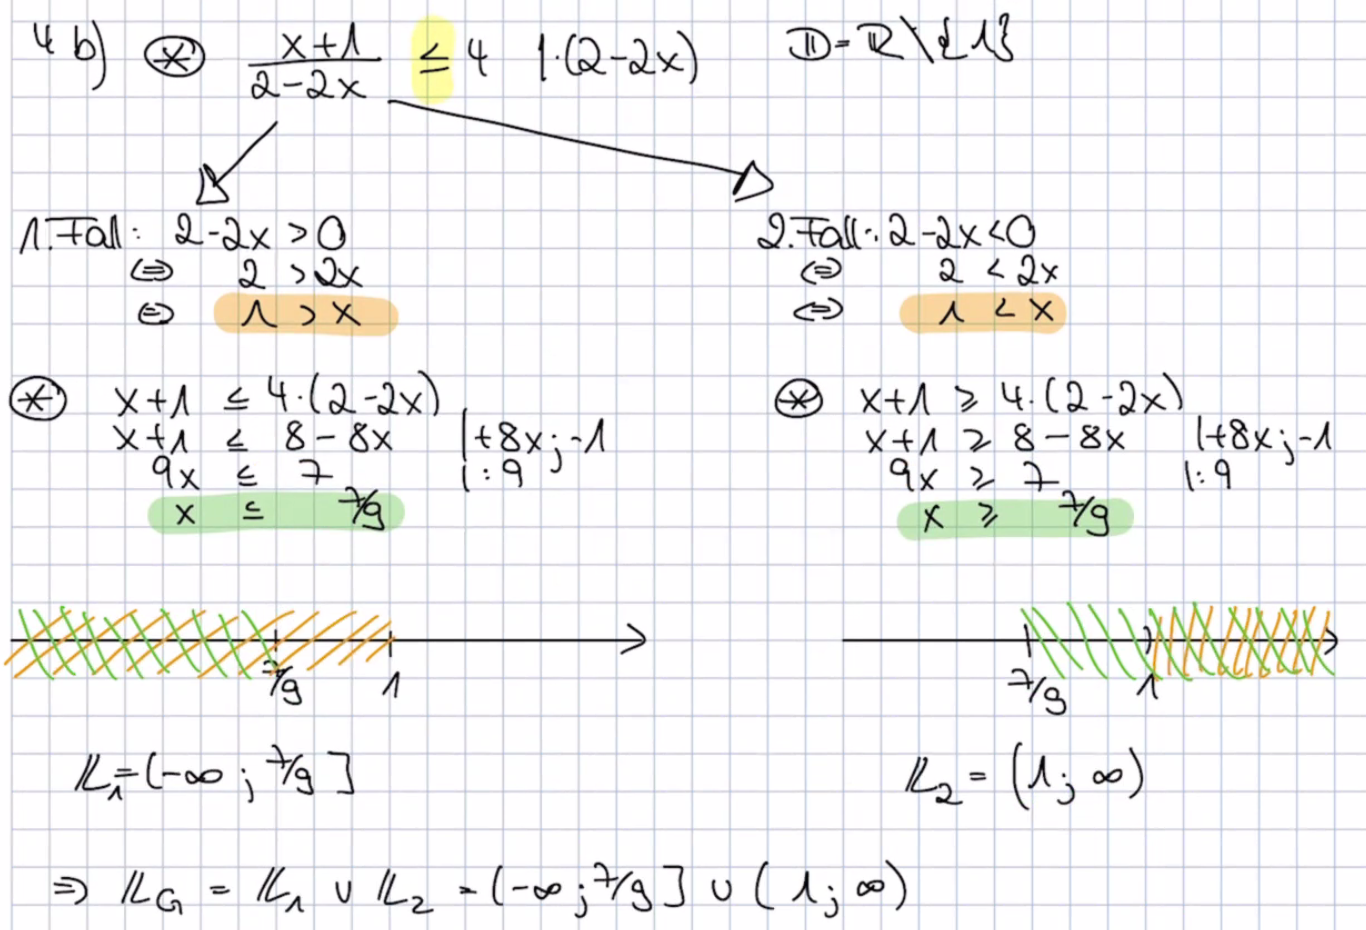 4 b) ⊛ (x+1)/(2-2x) ≤ 4 |·(2-2x) D=ℝ\{1}
1.Fall: 2-2x > 0
⇔ 2 > 2x
⇔ 1 > x
⊛ x+1 ≤ 4·(2-2x)
x+1 ≤ 8-8x |+8x; -1
9x ≤ 7 |:9
x ≤ 7/9
7/9 1
𝕃₁=(-∞; 7/9]
2.Fall: 2-2x<0
⇔ 2 < 2x
⇔ 1 < x
⊛ x+1 ≥ 4·(2-2x)
x+1 ≥ 8-8x |+8x; -1
9x ≥ 7 |:9
x ≥ 7/9
7/9 1
𝕃₂ = (1; ∞)
⇒ 𝕃G = 𝕃₁ ∪ 𝕃₂ = (-∞; 7/9] ∪ (1; ∞)